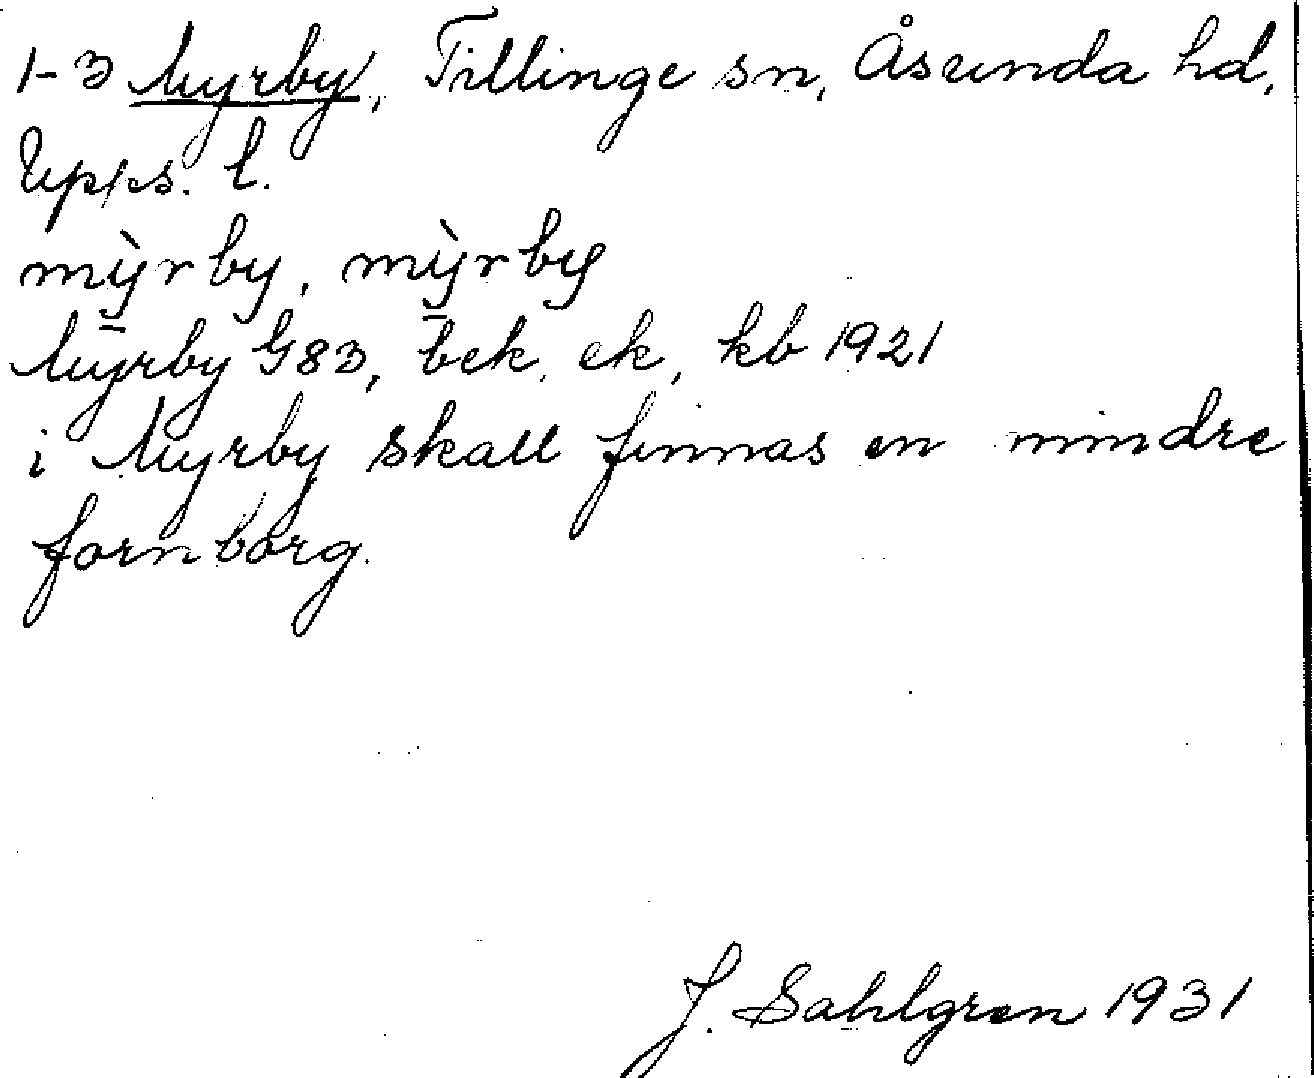 1-3 Myrby, Tillinge sn, Åsunda hd,
Upps. l.
mỳrby, mỳrby
Myrby G83, bek, ek, kb 1921
i Myrby skall finnas en mindre
fornborg.
J. Sahlgren 1931